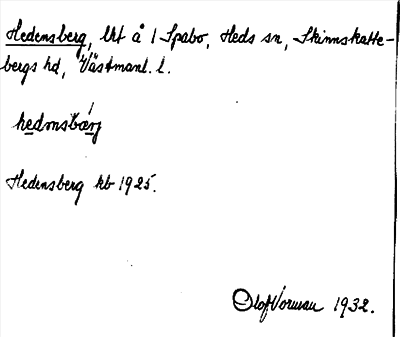 Hedensberg, lht å 1 Spabo, Heds sn, Skinnskatte-
bergs hd, Västmanl. l.
hedǝnsbærj
Hedensberg kb 1925.
Olof Vorman 1932.